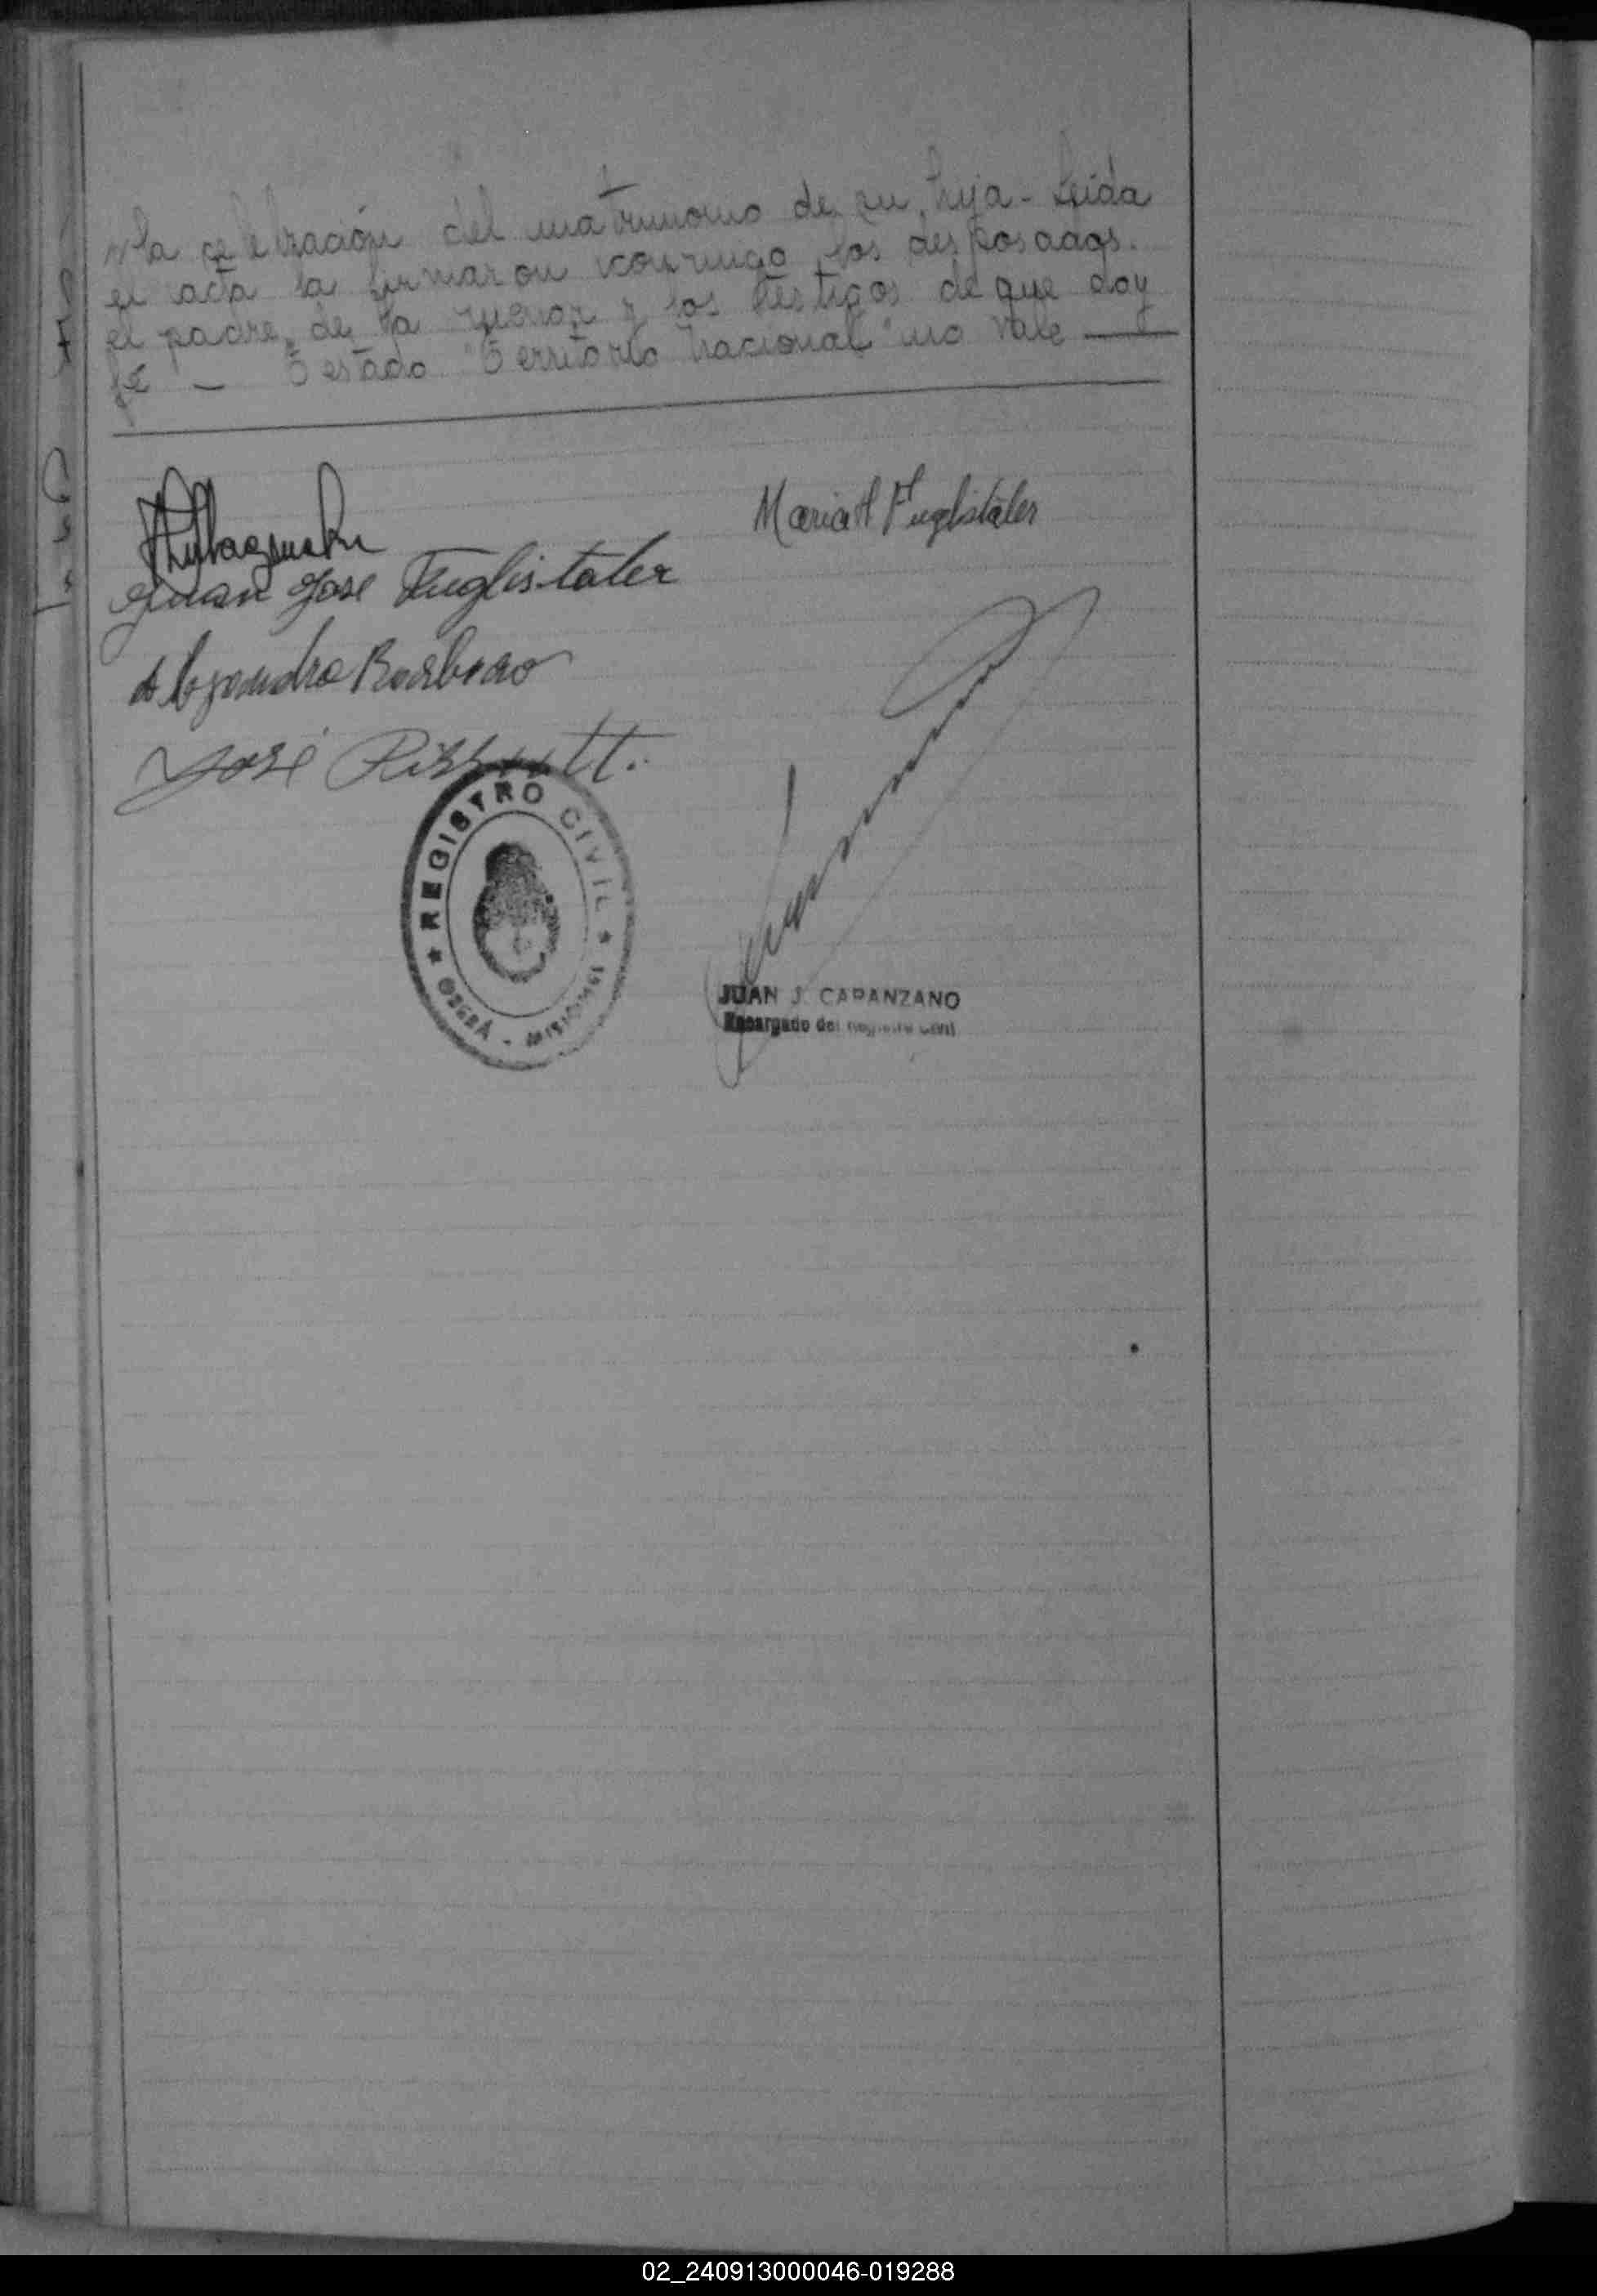 la celebración del matrimonio de su hija - Leida
el acta la firmaron conmigo los desposados.
el padre de la menor y los testigos de que doy
fé - Testado "Territorio Nacional" no vale
Maria A Fuglistaler
Juan Jose Fuglistaler
Alejandro Barboro
José
REGISTRO CIVIL
OBERÁ - MISIONES
JUAN J. CAPANZANO
Encargado del Registro Civil
02_240913000046-019288